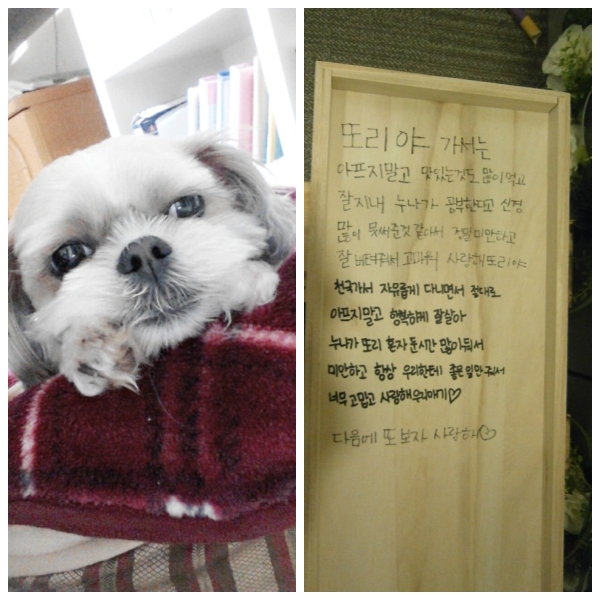 또리야 가서는
아프지말고 맛있는것도 많이먹고
잘지내 누나가 공부한다고 신경
많이 못써준것 같아서 정말미안하고
잘 버텨줘서 고마워 사랑해또리야
천국가서 자유롭게 다니면서 절대로
아프지말고 행복하게 잘살아
누나가 또리 혼자 둔시간 많이둬서
미안하고 항상 우리한테 좋은일만줘서
너무고맙고 사랑해우리애기♡
다음에 또보자 사랑해♡